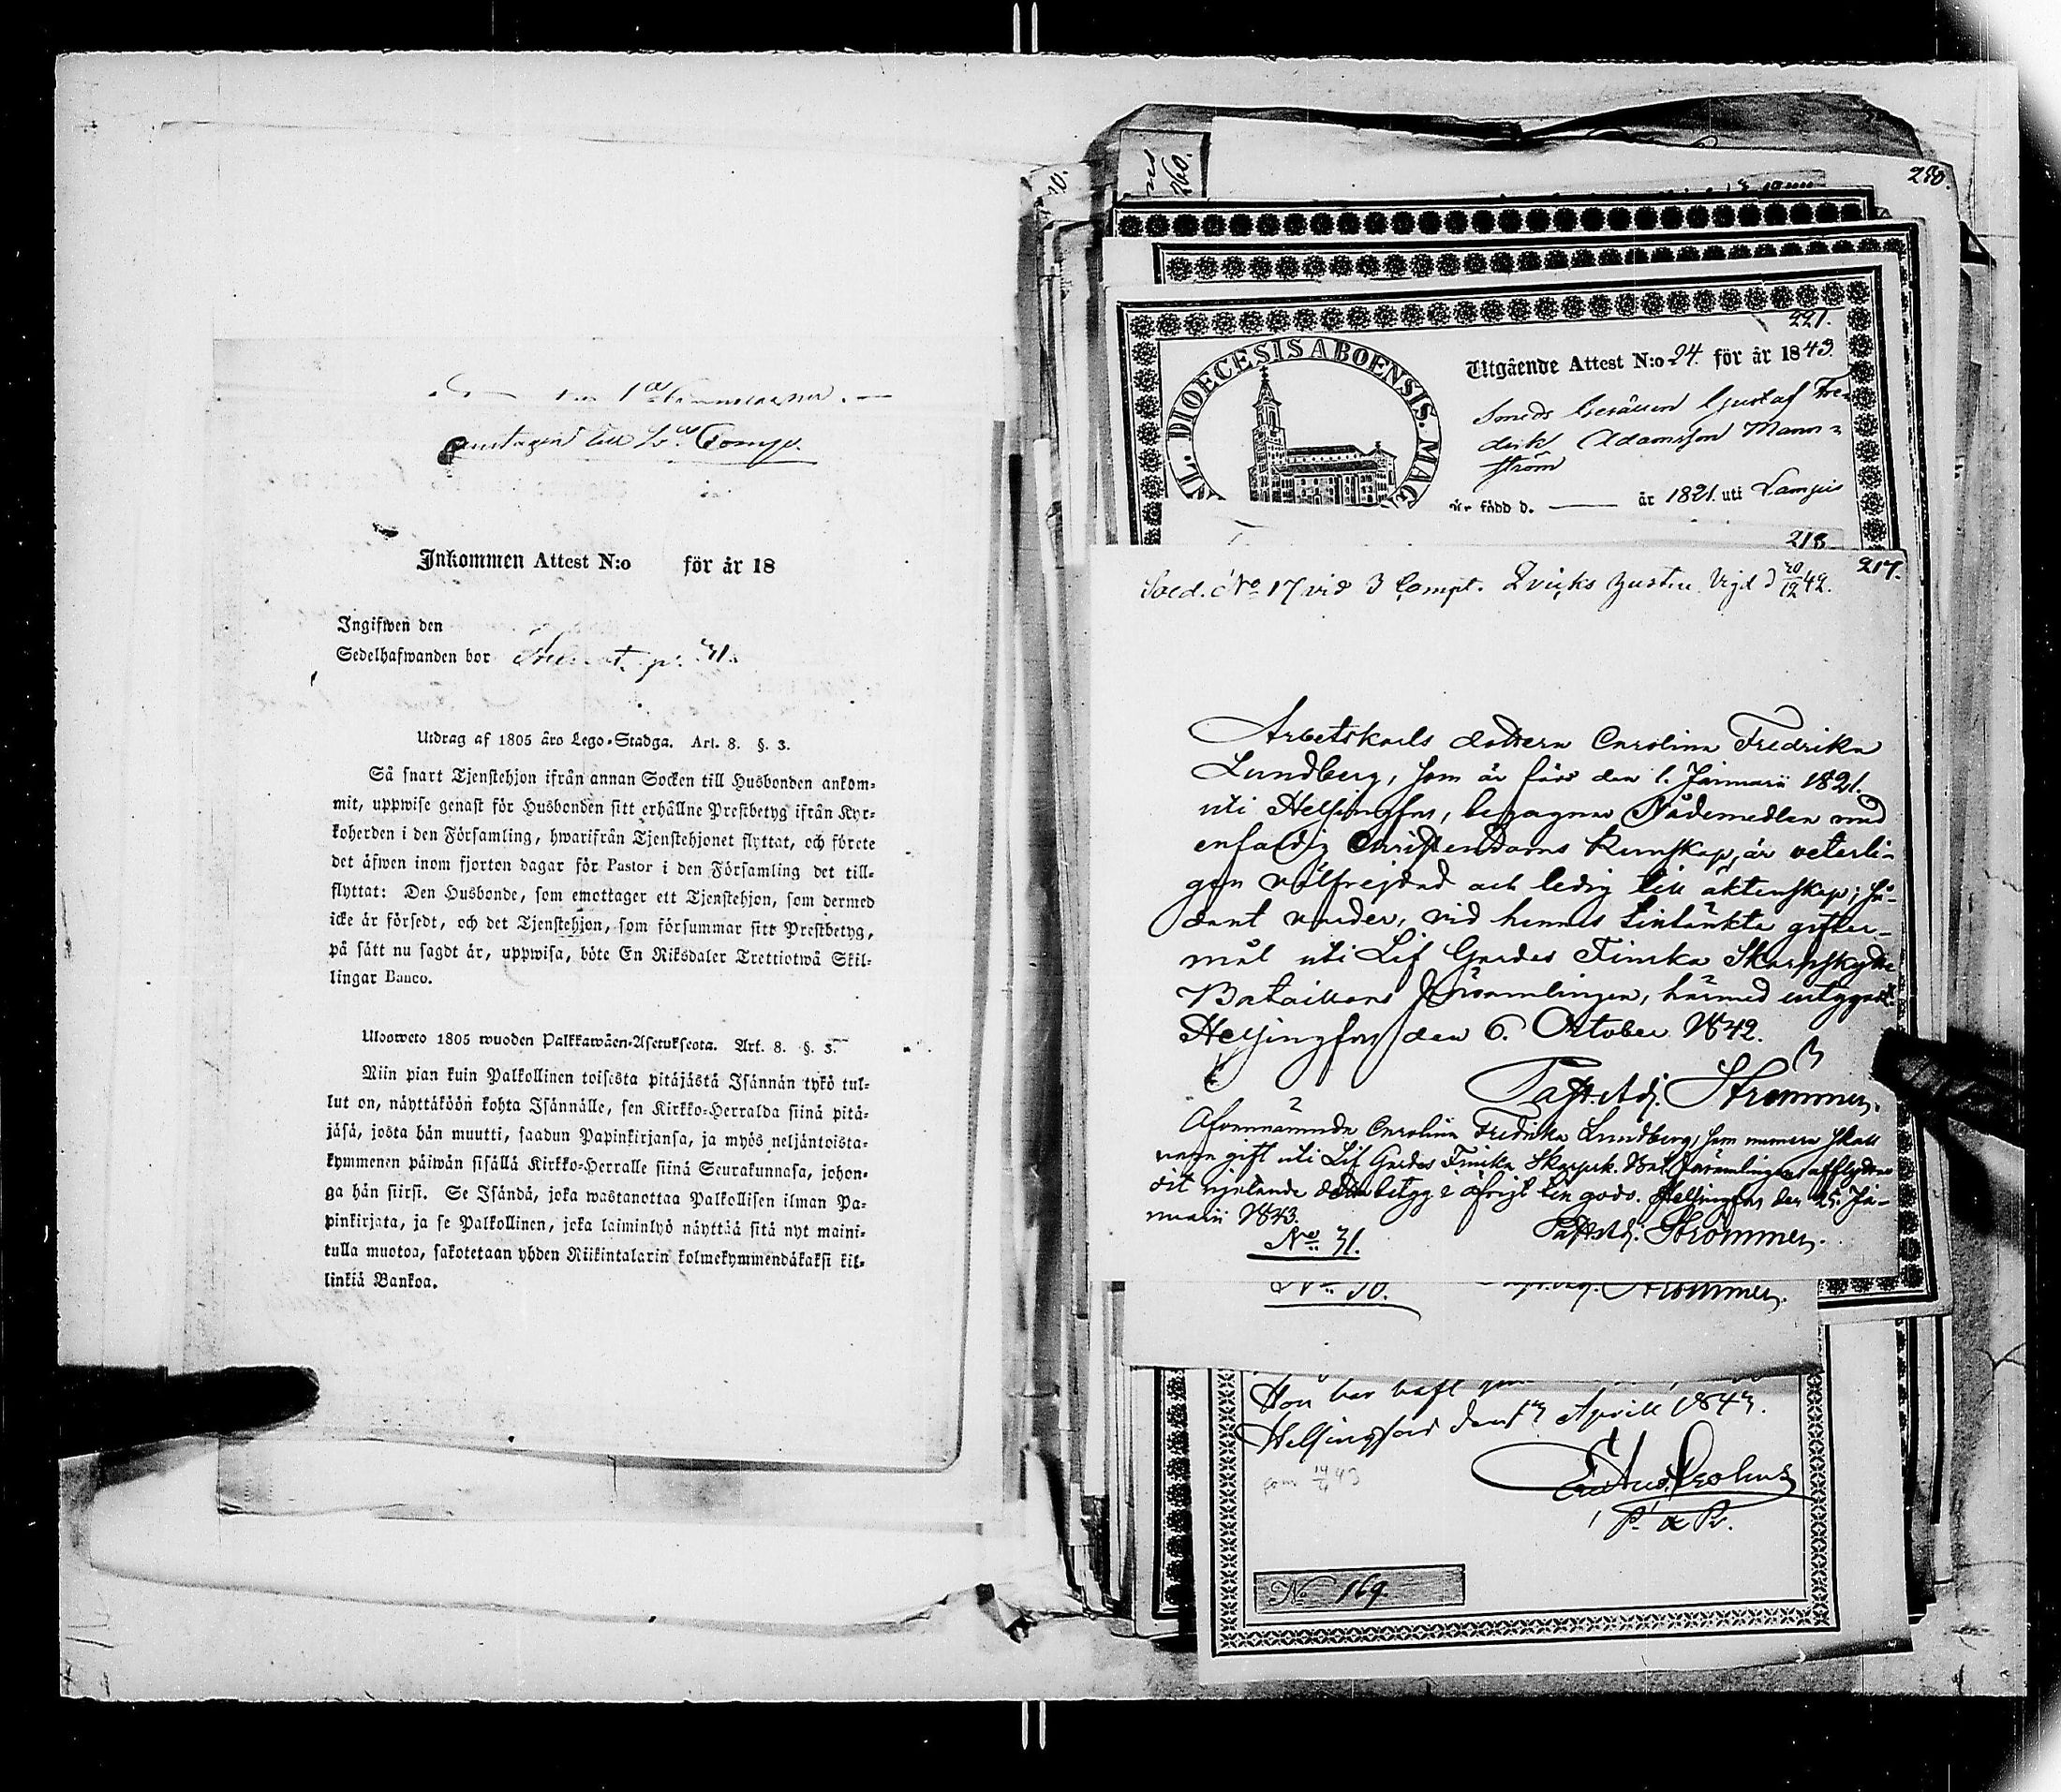 antagen till Comp.
Inkommen Attest N:o för år 18
Ingifwen den
Sedelhafwanden bor
Utdrag af 1805 års Lego-Stadga. Art. 8. §. 3.
Så snart Tjenstehjon ifrån annan Socken till Husbonden ankom-
mit, uppwise genast för Husbonden sitt erhållne Prestbetyg ifrån Kyr-
koherden i den Församling, hwarifrån Tjenstehjonet flyttat, och förete
det äfwen inom fjorton dagar för Pastor i den Församling det till-
flyttat: Den Husbonde, som emottager ett Tjenstehjon, som dermed
icke är försedt, och det Tjenstehjon, som försummar sitt Prestbetyg,
på sätt nu sagdt är, uppwisa, böte En Riksdaler Trettiotwå Skil-
lingar Banco.
Uloosweto 1805 wuoden Palkkawäen-Asetuksesta. Art. 8. §. 3.
Niin pian kuin Palkollinen toisesta pitäjästä Isännän tykö tul-
lut on, näyttäköön kohta Isännälle, sen Kirkko-Herralda siinä pitä-
jäsä, josta hän muutti, saadun Papinkirjansa, ja myös neljäntoista-
kymmenen päiwän sisällä Kirkko-Herralle siinä Seurakunnasa, johon-
ga hän siirsi. Se Isändä, joka wastanottaa Palkollisen ilman Pa-
pinkirjata, ja se Palkollinen, joka laiminlyö näyttää sitä nyt maini-
tulla muotoa, sakotetaan yhden Riikintalarin kolmekymmendäkaksi kil-
linkiä Bankoa.
260.
280.
221.
DIOECESIS ABOENSIS. MAG
Utgående Attest N:o 24. för år 1843.
Smeds Gesällen Gustaf Fre-
drik Adamsson Mann-
ström
är född d. — år 1821. uti Lampis
218
217.
Sold. No 17 vid 3 Compt. Qvicks hustru. Vigd d 20/12 42.
Arbetskarls dottern Carolina Fredrika
Lundberg, som är född den 1. Januarii 1821.
uti Helsingfors, begagnar Nådemedlen med
enfaldig Christendoms kunskap, är veterli-
gen välfrejdad och ledig till äktenskap; så-
dant varder, vid hennes tilltänkta gifter-
mål uti Lif Gardes Finska Skarpskytte
Bataillons Församlingen, härmed intygadt.
Helsingfors den 6. October 1842.
Past. Adj. Strömmer.
Ofvannämnde Carolina Fredrika Lundberg, som numera skall
vara gift uti Lif Gardes Finska Skarpsk. Bat. Församlingen afflyttar
dit njutande detta betyg i öfrigt till godo. Helsingfors den 25. Ja-
nuarii 1843.
No 31.
Past. Adj. Strömmer.
No 30.
Strömmer.
Hon har haft
Helsingfors den Aprill 1843.
14/4 43
P. &
No 169.